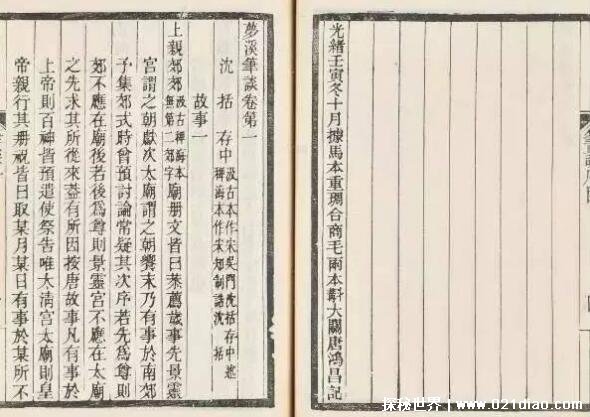 光緒壬寅冬十月據馬本重琱合商毛兩本斠大關唐鴻昌記
夢溪筆談卷第一
沈括 存中 汲古本作宋吳門沈括存中述 稗海本作宋知制誥沈括
故事一
上親郊郊 汲古稗海本無第二郊字 廟册文皆曰恭薦歲事先景靈
宮謂之朝獻次太廟謂之朝饗末乃有事於南郊
予集郊式時曾預討論常疑其次序若先為尊則
郊不應在廟後若後為尊則景靈宮不應在太廟
之先求其所從來蓋有所因按唐故事凡有事於
上帝則百神皆預遣使祭告唯太清宮太廟則皇
帝親行其册祝皆曰取某月某日有事於某所不
探秘世界:www.021diao.com